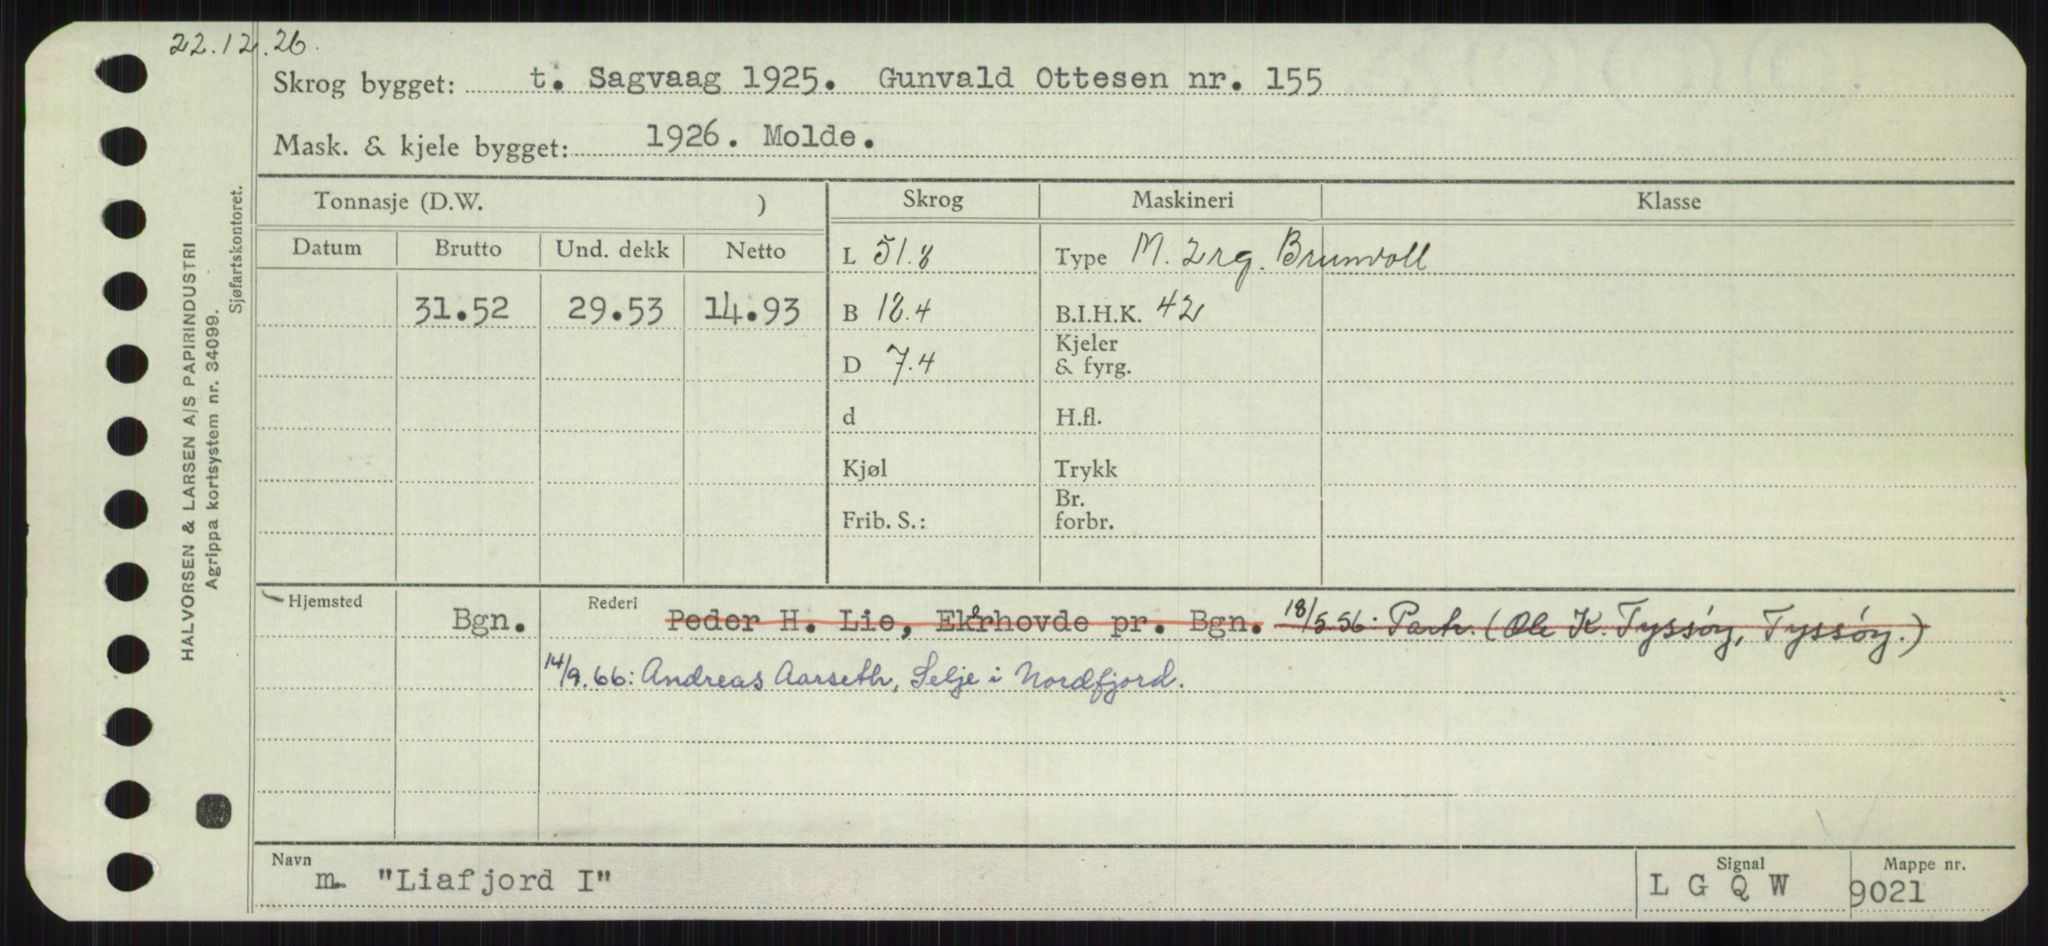 22.12.26.
Skrog bygget: t. Sagvaag 1925. Gunvald Ottesen nr. 155
Mask. & kjele bygget: 1926. Molde.
Tonnasje (D.W. ) Skrog Maskineri Klasse
Datum Brutto Und. dekk Netto L 51.8 Type M. 2rg. Brunvoll
31.52 29.53 14.93 B 18.4 B.I.H.K. 42
D 7.4 Kjeler & fyrg.
d H.fl.
Kjøl Trykk
Frib. S.: Br. forbr.
Hjemsted Bgn. Rederi Peder H. Lie, Ekerhovde pr. Bgn. 18/5.56: Partr. (Ole K. Tyssøy, Tyssøy.)
14/9.66: Andreas Aarseth, Selje i Nordfjord.
Navn m. "Liafjord I" Signal L G Q W Mappe nr. 9021
HALVORSEN & LARSEN A/S PAPIRINDUSTRI
Agrippa kortsystem nr. 34099.
Sjøfartskontoret.